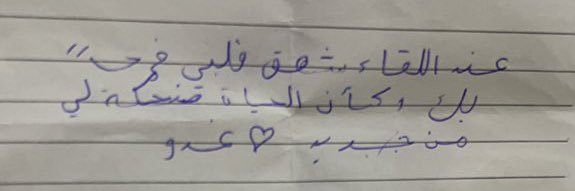 عند اللقاء يشهق قلبي فرحـ "
بك وكأن الحياة ضحكة لي
من جديد ♡ غدو